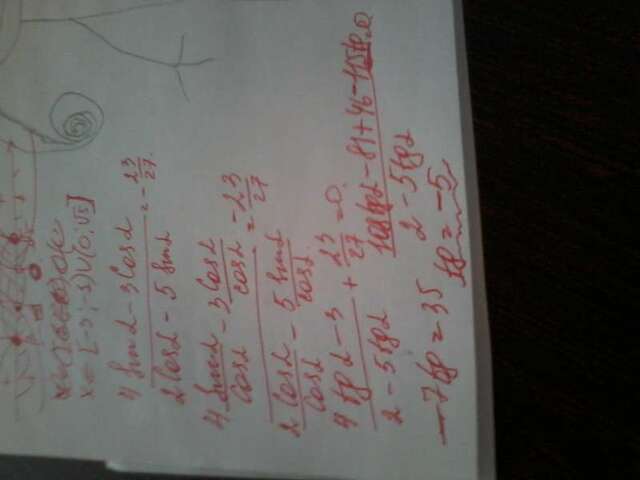 x = [-3; -1) ∪ (0; √5]
4 sin α - 3 cos α / 2 cos α - 5 sin α = - 23/27
4 sin α/cos α - 3 cos α/cos α / 2 cos α/cos α - 5 sin α/cos α = -23/27
4 tg α - 3 / 2 - 5 tg α + 23/27 = 0
108 tg α - 81 + 46 - 115 tg = 0 / 2 - 5 tg α
-7 tg = 35
tg = -5